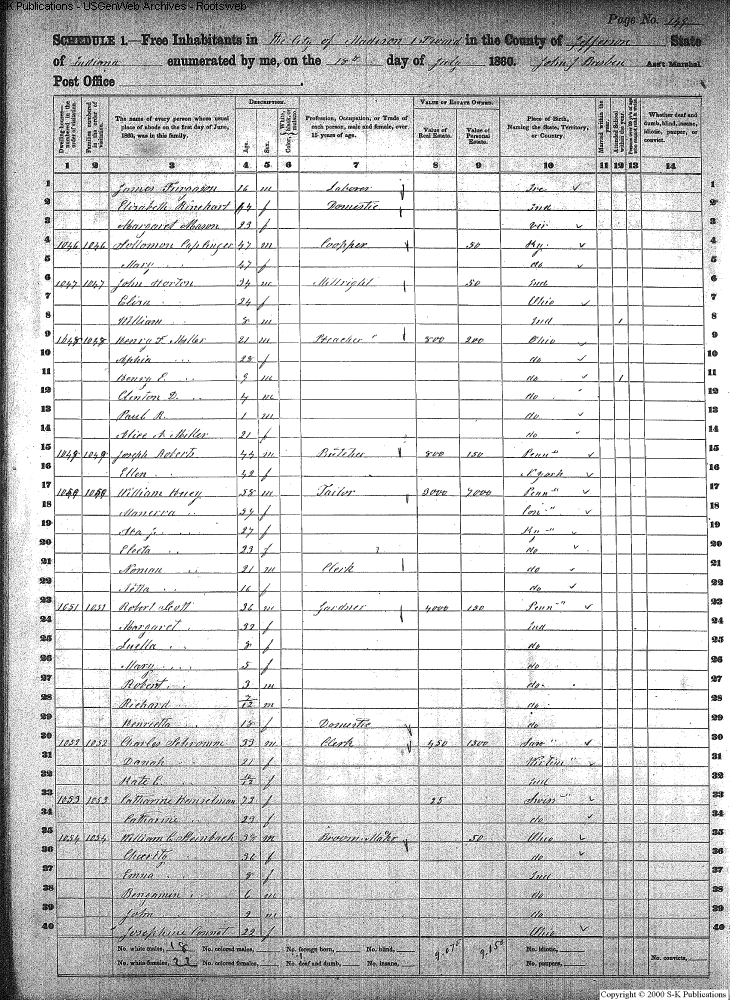 S-K Publications - USGenWeb Archives - Rootsweb
Page No. 149
SCHEDULE 1.—Free Inhabitants in The City of Madison 1st ward in the County of Jefferson State
of Indiana enumerated by me, on the 18th day of July 1860. Ass't Marshal
Post Office
DESCRIPTION. VALUE OF ESTATE OWNED.
Dwelling-houses numbered in the order of visitation. Families numbered in the order of visitation. The name of every person whose usual place of abode on the first day of June, 1860, was in this family. Age. Sex. Color, White, black, or mulatto. Profession, Occupation, or Trade of each person, male and female, over 15 years of age. Value of Real Estate. Value of Personal Estate. Place of Birth, Naming the State, Territory, or Country. Married within the year. Attended School within the year. Whether deaf and dumb, blind, insane, idiotic, pauper, or convict.
1 2 3 4 5 6 7 8 9 10 11 12 13 14
1 James Furgason 16 m Laborer Ire 1
2 Elizabeth Rinehart f Domestic Ind 2
3 Margaret Mason 23 f Vir 3
4 1046 1046 Sollomon Caplinger 47 m Coopper 50 Ky 4
5 Mary 47 f do 5
6 1047 1047 John Horton 34 m Millright 50 Ind 6
7 Eliza 24 f Ohio 7
8 William 8 m Ind 1 8
9 1048 1048 Henry F. Miller 21 m Preacher 800 200 Ohio 9
10 Aphia " 28 f do 10
11 Henry E. " 9 m do 1 11
12 Clinton D. " 4 m do 12
13 Paul R. 1 m do 13
14 Alice A. Miller 21 f do 14
15 1049 1049 Joseph Roberts 44 m Butcher 800 150 Penn " 15
16 Ellen " 42 f N York 16
17 1050 1050 William Huey 58 m Tailor 3000 7000 Penn " 17
18 Manerva " 54 f Con " 18
19 " 27 f Ky " 19
20 Electa " 23 f do 20
21 Noman " 21 m Clerk do 21
22 Netta " 16 f do 22
23 1051 1051 Robert Scott 36 m Gardner 4000 150 Penn " 23
24 Margaret " 32 f Ind 24
25 Luella " 8 f do 25
26 Mary " 5 f do 26
27 Robert " 3 m do 27
28 Richard " m do 28
29 Henrietta " 18 f Domestic do 29
30 1052 1052 Charles Schramm 33 m Clerk 450 1500 Saxe " 30
31 Danah " 21 f 31
32 Kate C. " f Ind 32
33 1053 1053 Catharine Hunselman 73 f 25 Swis " 33
34 Catharine " 29 f do 34
35 1054 1054 William C. Steinbach 38 m Broom Makr 50 Ohio 35
36 Charity " 36 f do 36
37 Emma " 8 f Ind 37
38 Benjamin " 6 m do 38
39 John " 2 m do 39
40 Josephine 22 f Ohio 40
No. white males, 18 No. colored males, No. foreign born, No. blind, 9.075 9.150 No. idiotic,
No. white females, 22 No. colored females, No. deaf and dumb, No. insane, No. paupers, No. convicts,
Copyright © 2000 S-K Publications